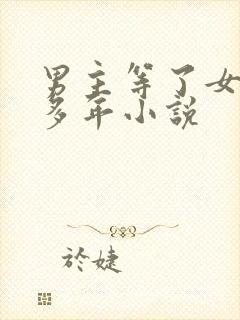 男主等了女
多年小说
於婕